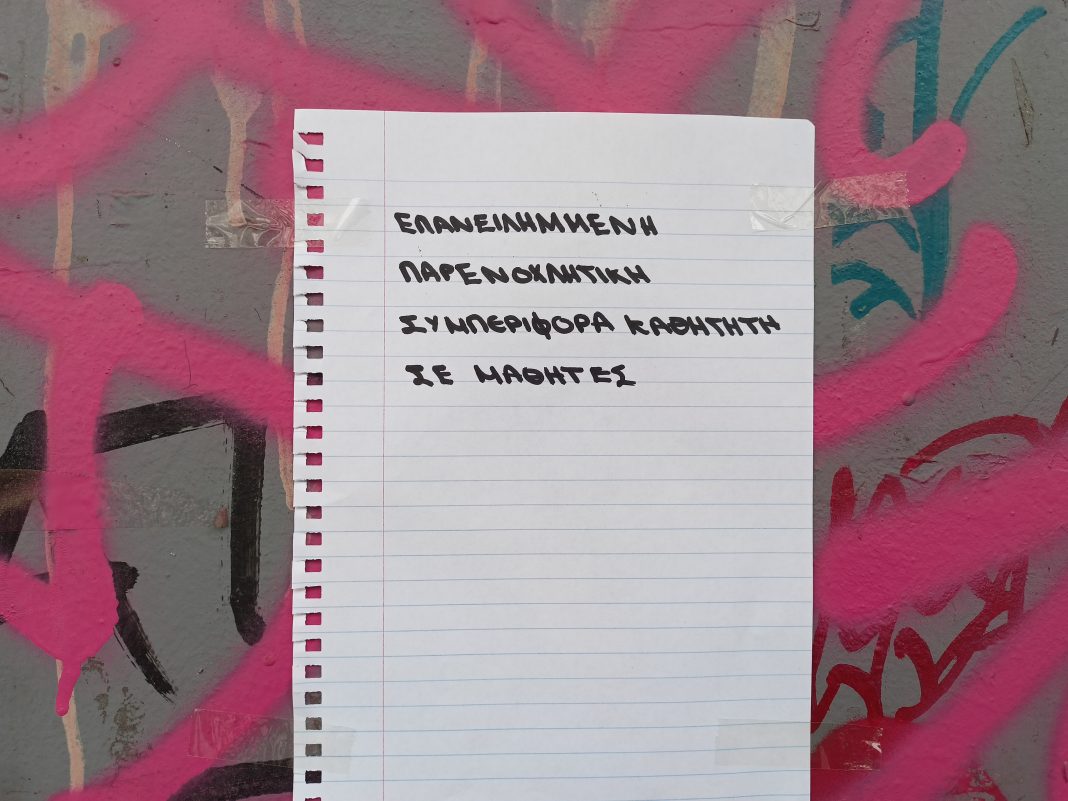 ΕΠΑΝΕΙΛΗΜΜΕΝΗ
ΠΑΡΕΝΟΧΛΗΤΙΚΗ
ΣΥΜΠΕΡΙΦΟΡΑ ΚΑΘΗΓΗΤΗ
ΣΕ ΜΑΘΗΤΕΣ